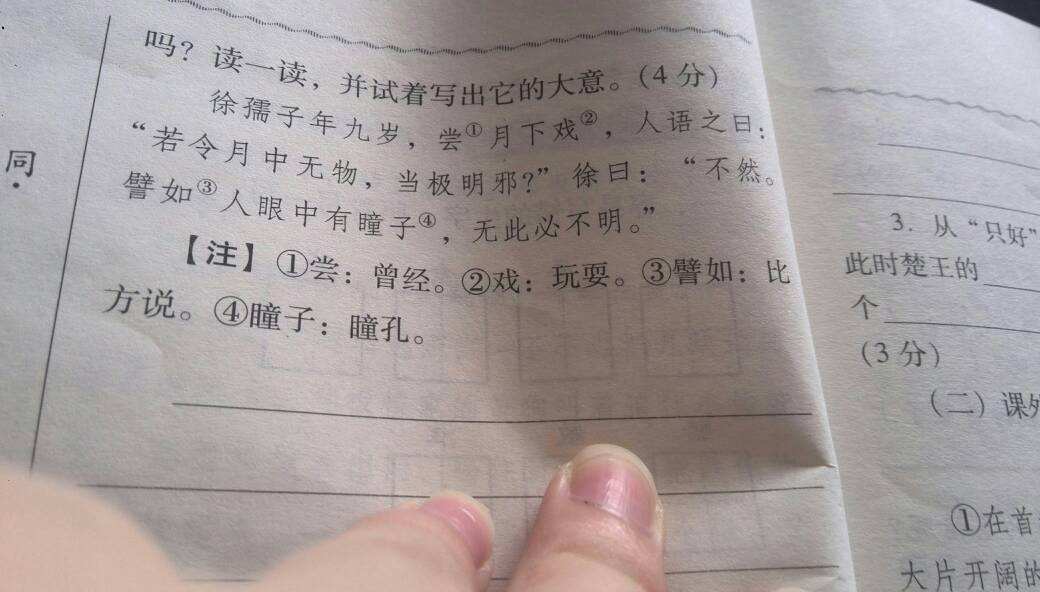 吗？读一读，并试着写出它的大意。（4 分）
徐孺子年九岁，尝①月下戏②，人语之曰：
“若令月中无物，当极明邪？”徐曰：“不然。
譬如③人眼中有瞳子④，无此必不明。”
【注】①尝：曾经。②戏：玩耍。③譬如：比
方说。④瞳子：瞳孔。
同
3. 从“只好”
此时楚王的
个
（3 分）
（二）课外
①在首
大片开阔的